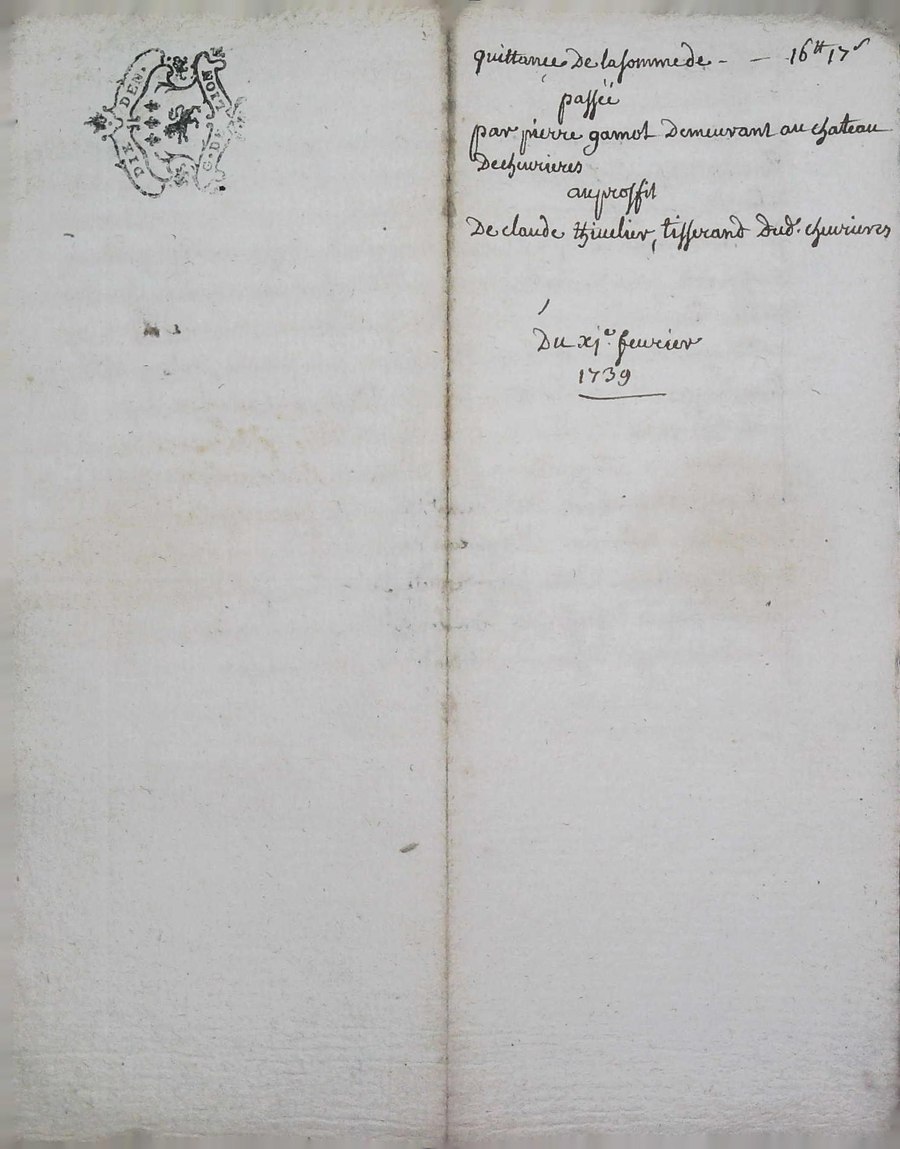 DIX DEN.
G. DE LION
quittance de la somme de - - 16tt 17s
passée
par pierre gamot demeurant au chateau
de cheurieres
au proffit
de claude thiuelier, tisserand dud. cheurieres
Du xje. feurier
1739